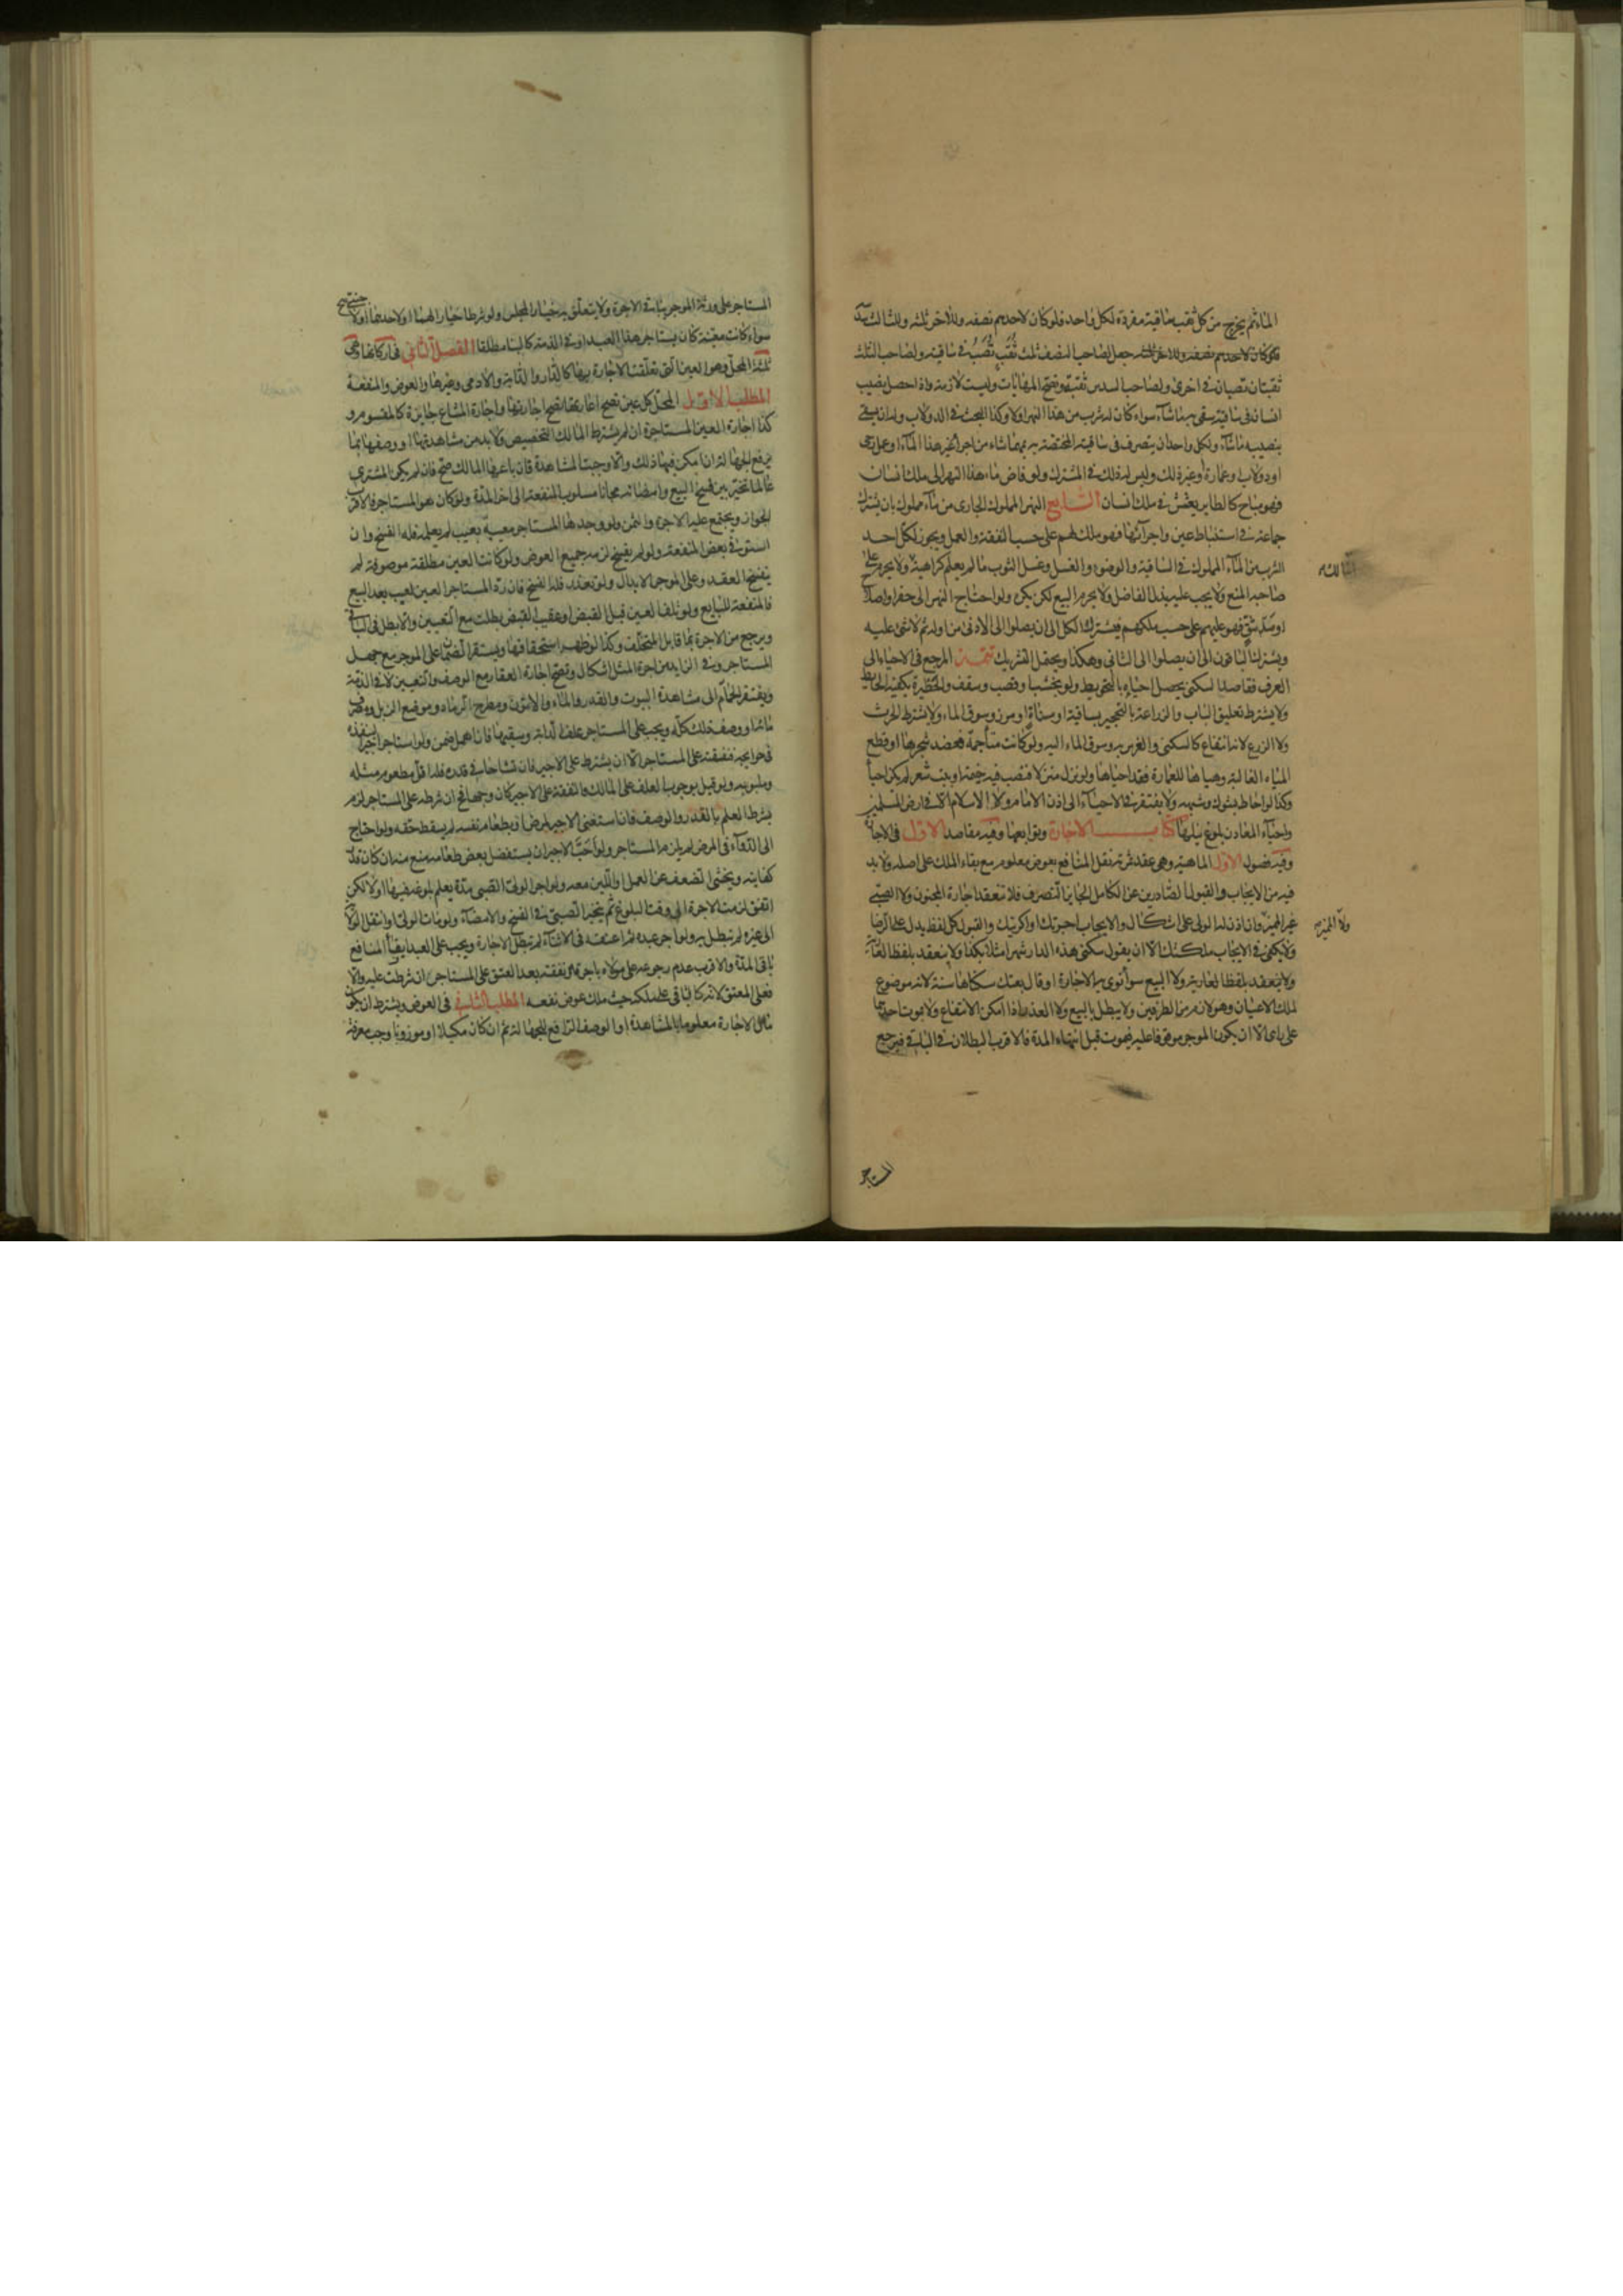 الماء ثم يخرج من كل ثقب ساقية مفردة لكل واحد فلو كان لاحدهم نصفه وللاخر ثلثه وللثالث سدسه
فلو كان لاحدهم نصفه وللاخر ثلثه جعل لصاحب النصف ثلث ثقب تصب في ساقية ولصاحب الثلث
ثقبتان تصبان في اخرى ولصاحب السدس ثقبة وتصح المهايات وليست لازمة واذا حصل نصيب
انسان في ساقية سقى به ما شاء سواء كان له شرب من هذا النهر اولا وكذا البحث في الدولاب وله ان يسقى
بنصيبه ما شاء ولكل واحد ان يتصرف في ساقيته المختصة به بمهما شاء من اجراء غير هذا الماء او عمل رحى
او دولاب او عبارة او غير ذلك وليس له ذلك في المشترك ولو فاض ماء هذا النهر الى ملك انسان
فهو مباح كالطاير يعشش في ملك انسان السابع النهر المملوك الجارى من ماء مملوك بان يشترك
جماعة في استنباط عين واجرائها فهو ملك لهم على حسب النفقة والعمل ويجوز لكل احد
الشرب من الماء المملوك في الساقية والوضوء والغسل وغسل الثوب ما لم يعلم كراهية ولا يحرم على
صاحبه المنع ولا يجب عليه بذل الفاضل ولا يحرم البيع لكن يكره ولو احتاج النهر الى حفر او اصلاح
او سد بثق فهو عليهم على حسب ملكهم فيشترك الكل الى ان يصلوا الى الادنى من اوله ثم لا شئ عليه
ويشترك الباقون الى ان يصلوا الى الثانى وهكذا ويحتمل التشريك تتمة المرجع في الاحياء الى
العرف فقاصد السكنى يحصل احياؤه بالتحويط ولو بخشب او قصب وسقف والحظيرة يكفيه الحايط
ولا يشترط تعليق الباب والزراعة بالتحجير بساقية او مسناة او مرز وسوق الماء ولا يشترط الحرث
ولا الزرع لانه انتفاع كالسكنى والغرس به وسوق الماء اليه ولو كانت مستأجمة فعضد شجرها او قطع
المياه الغالبة وهياها للعمارة فقد احياها ولو نزل منزلا فنصب فيه خيمة او بيت شعر لم يكن احياء
وكذا لو احاط بشوك وشبهه ولا يفتقر في الاحياء الى اذن الامام ولا الاسلام الا في ارض المسلمين
واحياء المعادن بلوغ نيلها كتاب الاجارة وتوابعها وفيه مقاصد الاول في الاجارة
وفيه فصول الاول الماهية وهي عقد ثمرته نقل المنافع بعوض معلوم مع بقاء الملك على اصله ولا بد
فيه من الايجاب والقبول الصادرين عن الكامل الجايز التصرف فلا تنعقد اجارة المجنون ولا الصبى
غير المميز وان اذن له الولى على اشكال والايجاب اجرتك او اكريتك والقبول كل لفظ يدل على الرضا
ولا يكفى في الايجاب ملكتك الا ان يقول سكنى هذه الدار شهرا مثلا بكذا ولا ينعقد بلفظ العارية
ولا ينعقد بلفظ العارية ولا البيع سواء نوى به الاجارة او قال بعتك سكناها سنة لانه موضوع
لملك الاعيان وهو لازم من الطرفين ولا يبطل بالبيع ولا العذر اذا امكن الانتفاع ولا بموت احدهما
على راى الا ان يكون الموجر موقوفا عليه فيموت قبل انتهاء المدة فالاقرب البطلان في الباقى فيرجع
ولا المميز
المستاجر
المستاجر على ورثة الموجر بباقى الاجرة ولا يتعلق به خيار المجلس ولو شرطا خيار الهما او لاحدهما او لاجنبى صح
سواء كانت معينة كان يستاجر هذا العبد او في الذمة كالبناء مطلقا الفصل الثانى في اركانها وهي
ثلثة المحل وهو العين التى تعلقت الاجارة بها كالدار والدابة والادمى وغيرها والعوض والمنفعة
المطلب الاول المحل كل عين تصح اعارتها تصح اجارتها واجارة المشاع جايزة كالمقسوم و
كذا اجارة العين المستاجرة ان لم يشترط المالك التخصيص ولا بد من مشاهدتها او وصفها بما
يرفع الجهالة ان امكن فيها ذلك والا وجبت المشاهدة فان باعها المالك صح فان لم يكن المشترى
عالما تخير بين فسخ البيع وامضائه مجانا مسلوب المنفعة الى اخر المدة ولو كان هو المستاجر فالاقرب
الجواز ويجتمع عليه الاجرة والثمن ولو وجدها المستاجر معيبة بعيب لم يعلمه فله الفسخ وان
استوفى بعض المنفعة ولو لم يفسخ لزمه جميع العوض ولو كانت العين مطلقة موصوفة لم
ينفسخ العقد وعلى الموجر الابدال ولو تعذر فله الفسخ فان رد المستاجر العين لعيب بعد البيع
فالمنفعة للبايع ولو تلف العين قبل القبض او عقيب القبض بطلت مع التعيين والا بطل في الباقى
ويرجع من الاجرة بما قابل المتخلف وكذا لو ظهر استحقاقها ويستقر الضمان على الموجر مع جهل
المستاجر وفي الزايد من اجرة المثل اشكال وتصح اجارة العقار مع الوصف والتعيين لا في الذمة
ويفتقر الحمام الى مشاهدة البيوت والقدر والماء والاتون ومطرح الرماد وموضع الزبل ومصرف
مائها او وصف ذلك كله ويجب على المستاجر علف الدابة وسقيها فان اهمل ضمن ولو استاجر اجيرا لينفذه
في حوايجه فنفقته على المستاجر الا ان يشترط على الاجير فان تشاحا في قدره فله اقل مطعوم مثله
وملبوسه ولو قيل بوجوب العلف على المالك والنفقة على الاجير كان وجها فح ان شرطه على المستاجر لزم
بشرط العلم بالقدر والوصف فان استغنى الاجير لمرض او بطعام نفسه لم يسقط حقه ولو احتاج
الى الدواء في المرض لم يلزم المستاجر ولو احب الاجير ان يستفضل بعض طعامه منع منه ان كان قدر
كفايته ويخشى الضعف عن العمل او اللبن معه ولو اجر الولى الصبى مدة يعلم بلوغه فيها اولا لكن
اتفق لزمت الاجرة الى وقت البلوغ ثم يتخير الصبى في الفسخ والامضاء ولو مات الولى او انتقل الولاية
الى غيره لم تبطل به ولو اجر عبده ثم اعتقه في الاثناء لم تبطل الاجارة ويجب على العبد ايفاء المنافع
باقى المدة والاقرب عدم رجوعه على مولاه باجرة ونفقته بعد العتق على المستاجر ان شرطت عليه والا
فعلى المعتق لانه كالباقى على ملكه حيث ملك عوض نفعه المطلب الثانى في العوض ويشترط ان يكون
مال الاجارة معلوما بالمشاهدة او الوصف الرافع للجهالة ثم ان كان مكيلا او موزونا وجب معرفته